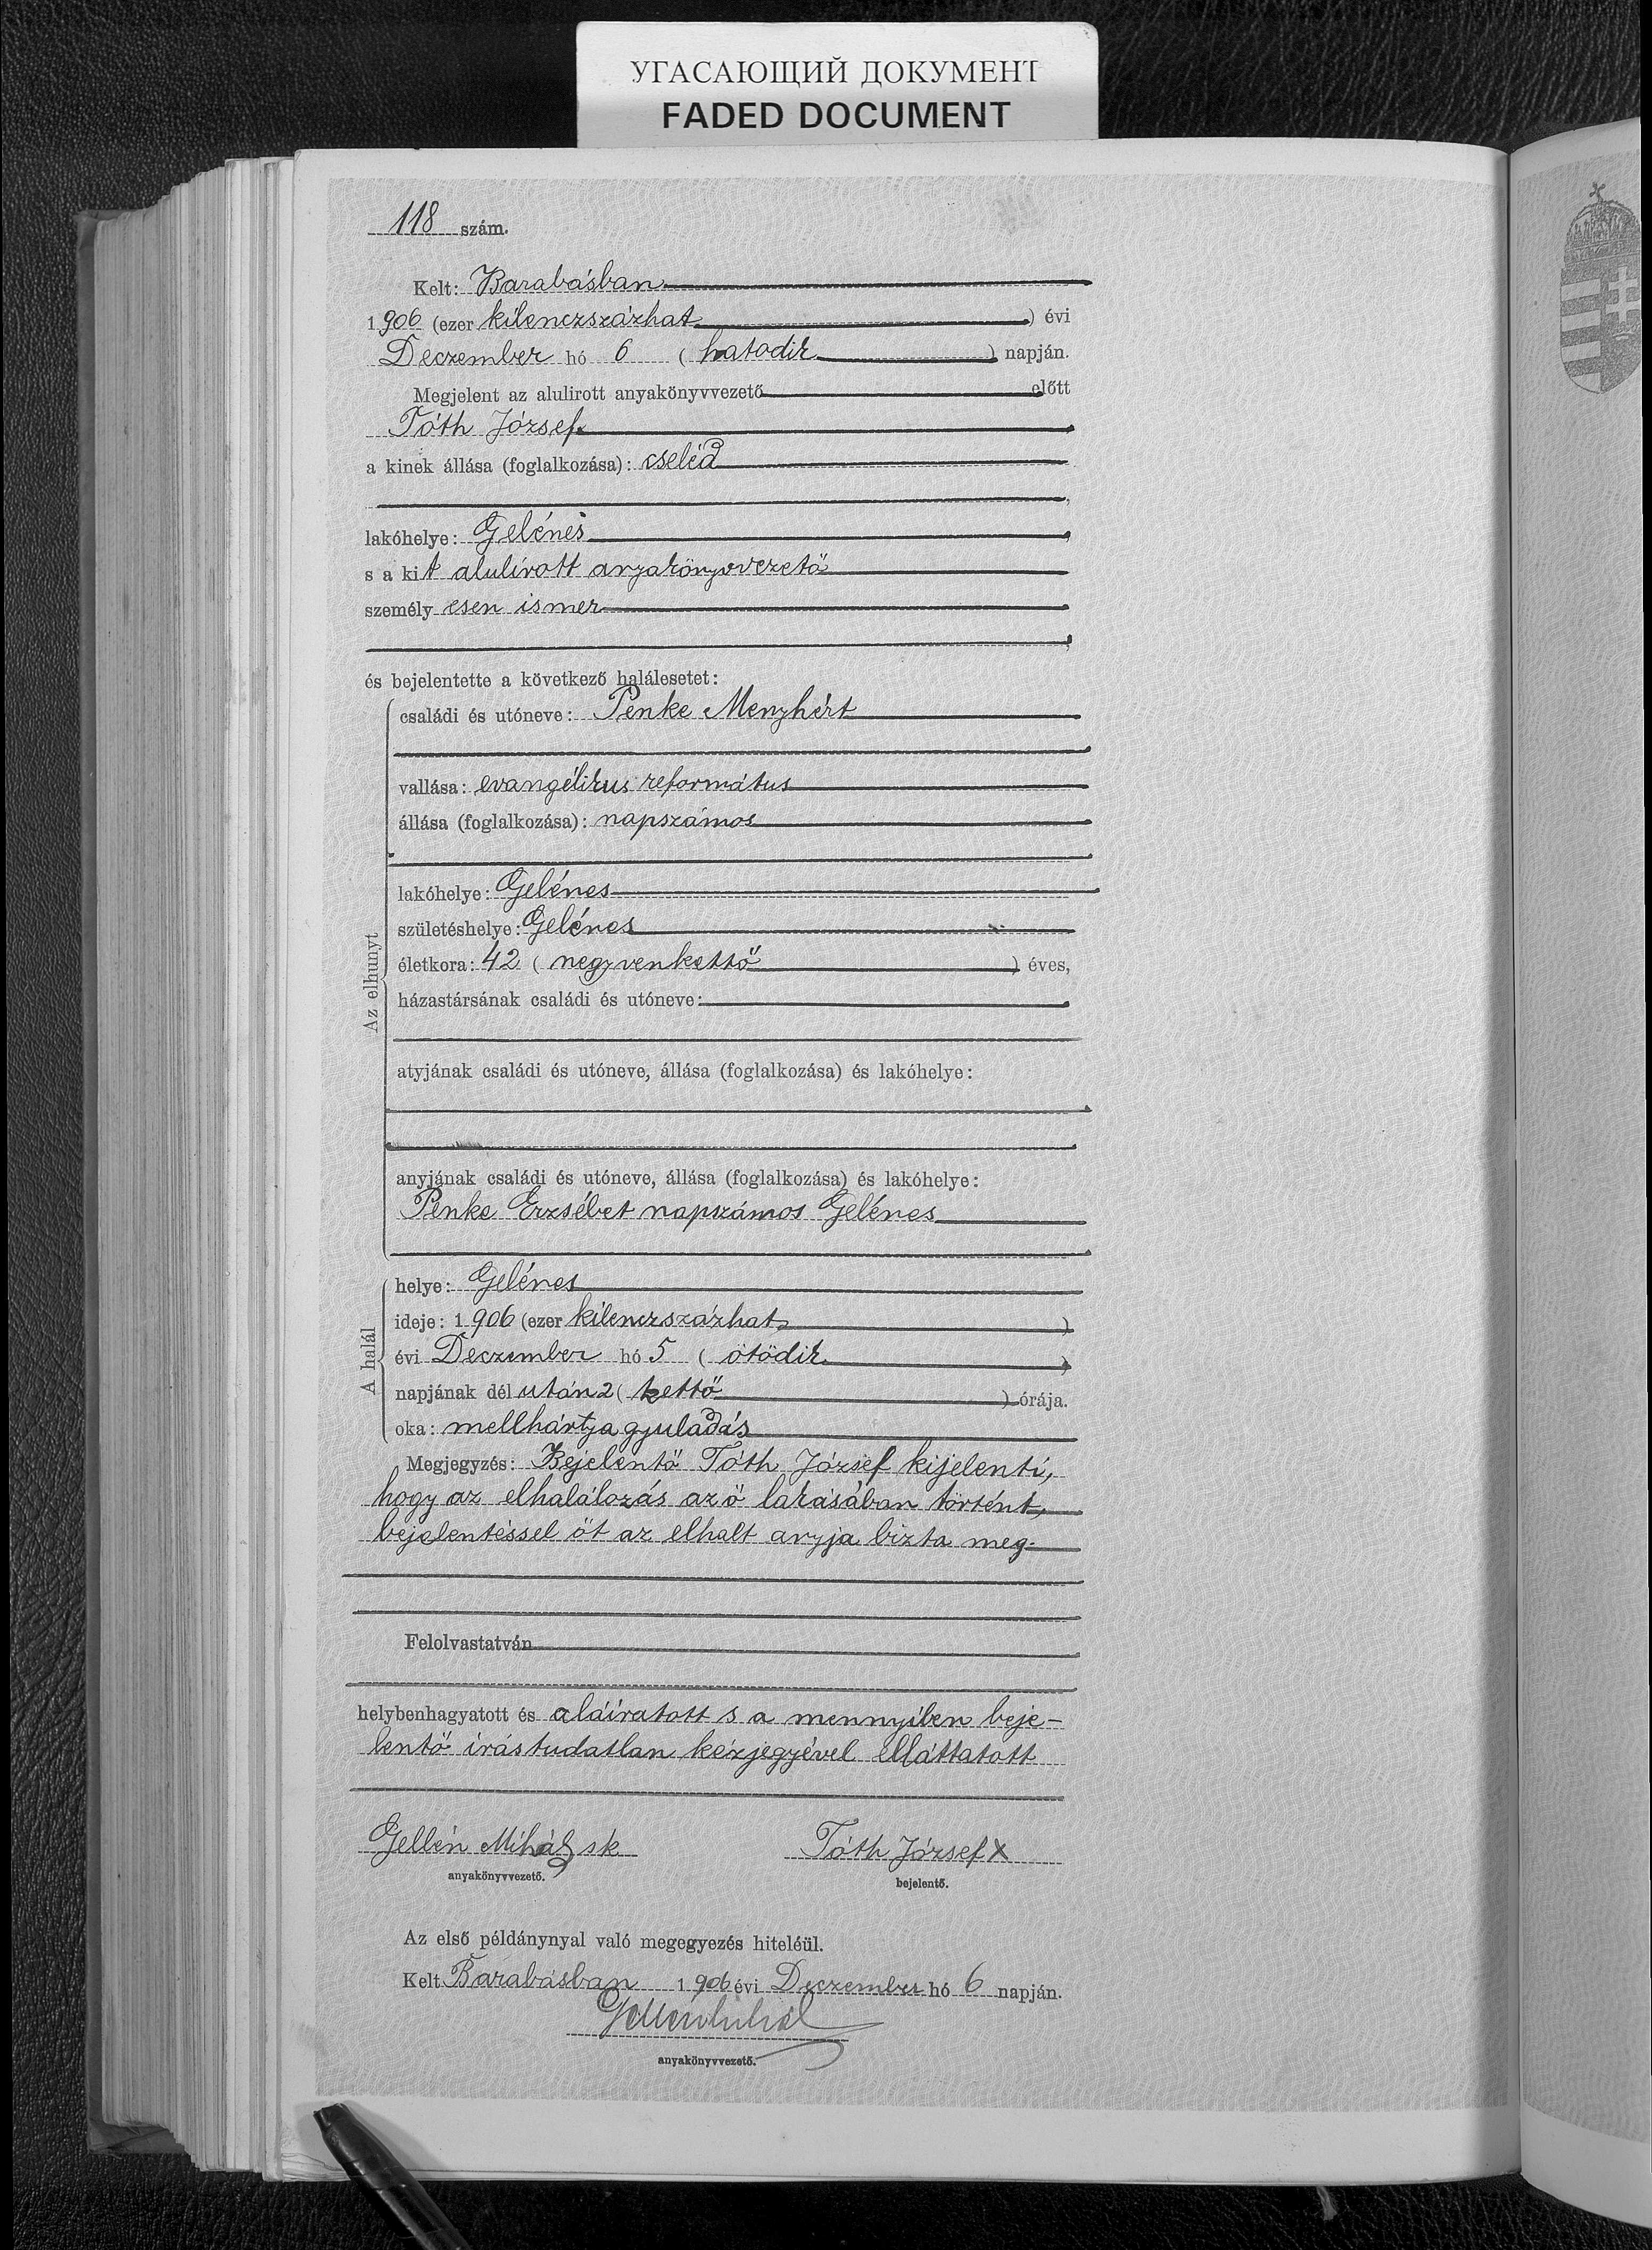 УГАСАЮЩИЙ ДОКУМЕНТ
FADED DOCUMENT
118 szám.
Kelt: Barabásban
1906 (ezer kilenczszázhat) évi
Deczember hó 6 (hatodik) napján.
Megjelent az alulirott anyakönyvvezető előtt
Tóth József
a kinek állása (foglalkozása): cseléd
lakóhelye: Gelénes
s a kit alulírott anyakönyvvezető
személyesen ismer
és bejelentette a következő halálesetet:
Az elhunyt
családi és utóneve: Penke Menyhért
vallása: evangélikus református
állása (foglalkozása): napszámos
lakóhelye: Gelénes
születéshelye: Gelénes
életkora: 42 (negyvenkettő) éves,
házastársának családi és utóneve:
atyjának családi és utóneve, állása (foglalkozása) és lakóhelye:
anyjának családi és utóneve, állása (foglalkozása) és lakóhelye:
Penke Erzsébet napszámos Gelénes
A halál
helye: Gelénes
ideje: 1906 (ezer kilenczszázhat)
évi Deczember hó 5 (ötödik)
napjának délután 2 (kettő) órája.
oka: mellhártya gyuladás
Megjegyzés: Bejelentő Tóth József kijelenti,
hogy az elhalálozás az ő lakásában történt,
bejelentéssel őt az elhalt anyja bizta meg.
Felolvastatván
helybenhagyatott és aláiratott s a mennyiben beje-
lentő írástudatlan kézjegyével elláttatott
Gellén Mihály sk Tóth József X
anyakönyvvezető. bejelentő.
Az első példánynyal való megegyezés hiteléül.
Kelt Barabásban 1906 évi Deczember hó 6 napján.
Gellén Mihál
anyakönyvvezető.